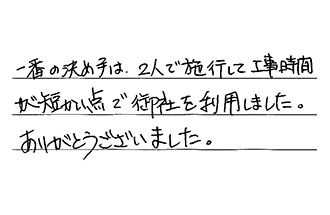 一番の決め手は、2人で施行して工事時間
が短かい点で御社を利用しました。
ありがとうございました。